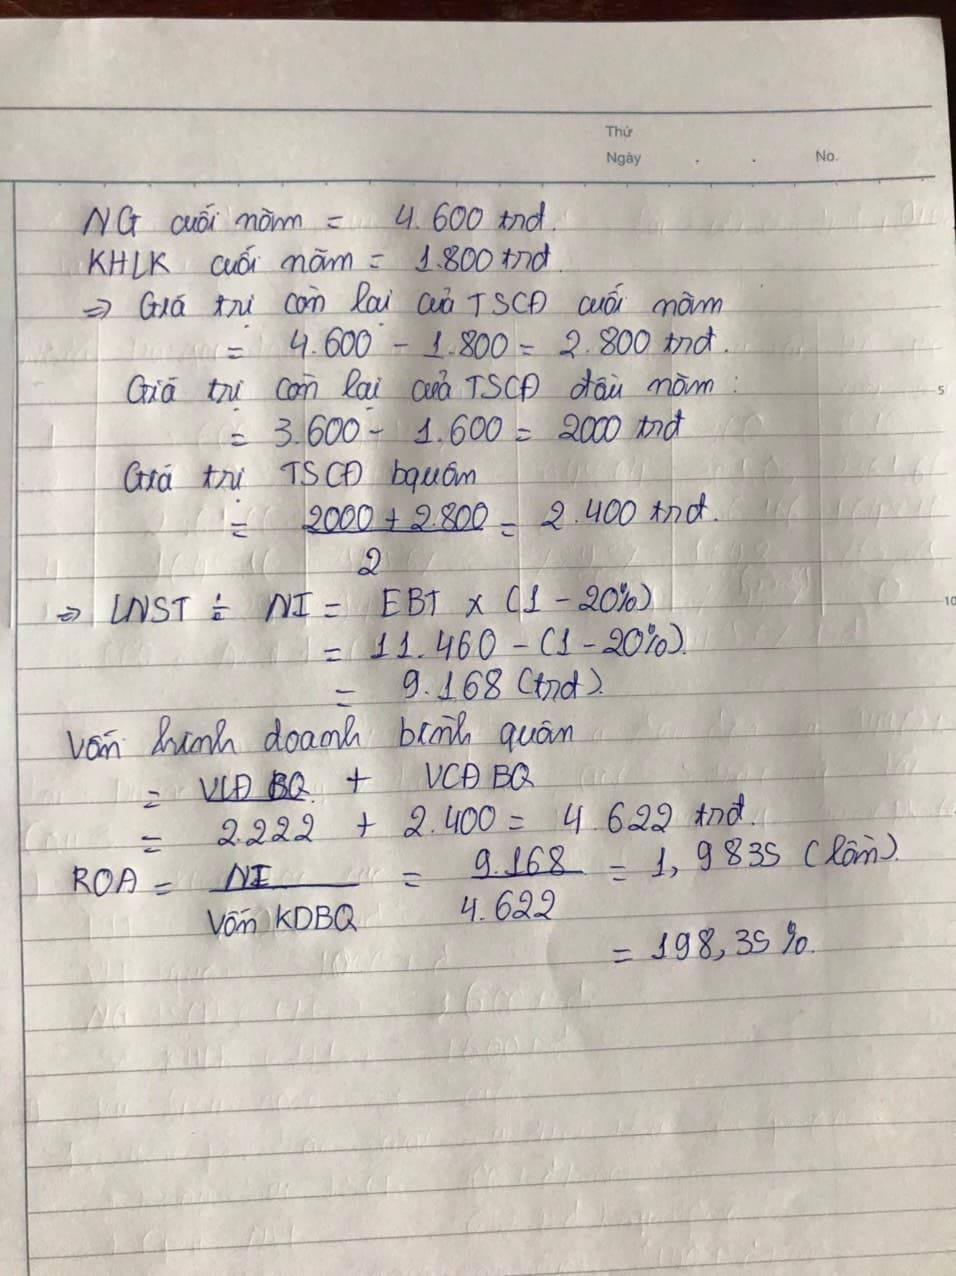 Thứ
Ngày . . No.
NG cuối năm = 4.600 trđ.
KHLK cuối năm = 1.800 trđ
=> Giá trị còn lại của TSCĐ cuối năm
= 4.600 - 1.800 = 2.800 trđ.
Giá trị còn lại của TSCĐ đầu năm :
5
= 3.600 - 1.600 = 2000 trđ
Giá trị TSCĐ bquân
= (2000 + 2.800) / 2 = 2.400 trđ.
=> LNST : NI = EBT x (1 - 20%)
10
= 11.460 - (1 - 20%).
= 9.168 (trđ).
Vốn kinh doanh bình quân
= VLĐ BQ + VCĐ BQ
= 2.222 + 2.400 = 4.622 trđ.
ROA = NI / Vốn KDBQ = 9.168 / 4.622 = 1,9835 (lần).
= 198,35 %.